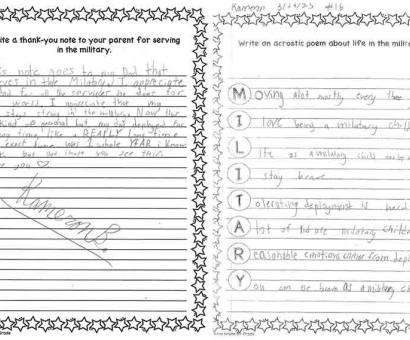 ite a thank-you note to your parent for serving
in the military.
s note goes to my Dad that
ves in the Military I appreciate
for all the services he does for
world, I appreciate that my
stays strong in the military. Now this
kind of personal but my dad deployed for
long time like a REAPLY long time
exact time was 1 whole YEAR I know
but
you ♡
Kameron B.
Grade
Kameron 3/24/23 #16
Write an acrostic poem about life in the milita
M oving alot mostly every three
I love being a military chil
L ife as a military child
I stay brave
T olerating deployment is hard
A lot of kid are military children
R easonable emotions comes from deplo
Y ou can be brave as a military chi
Grade